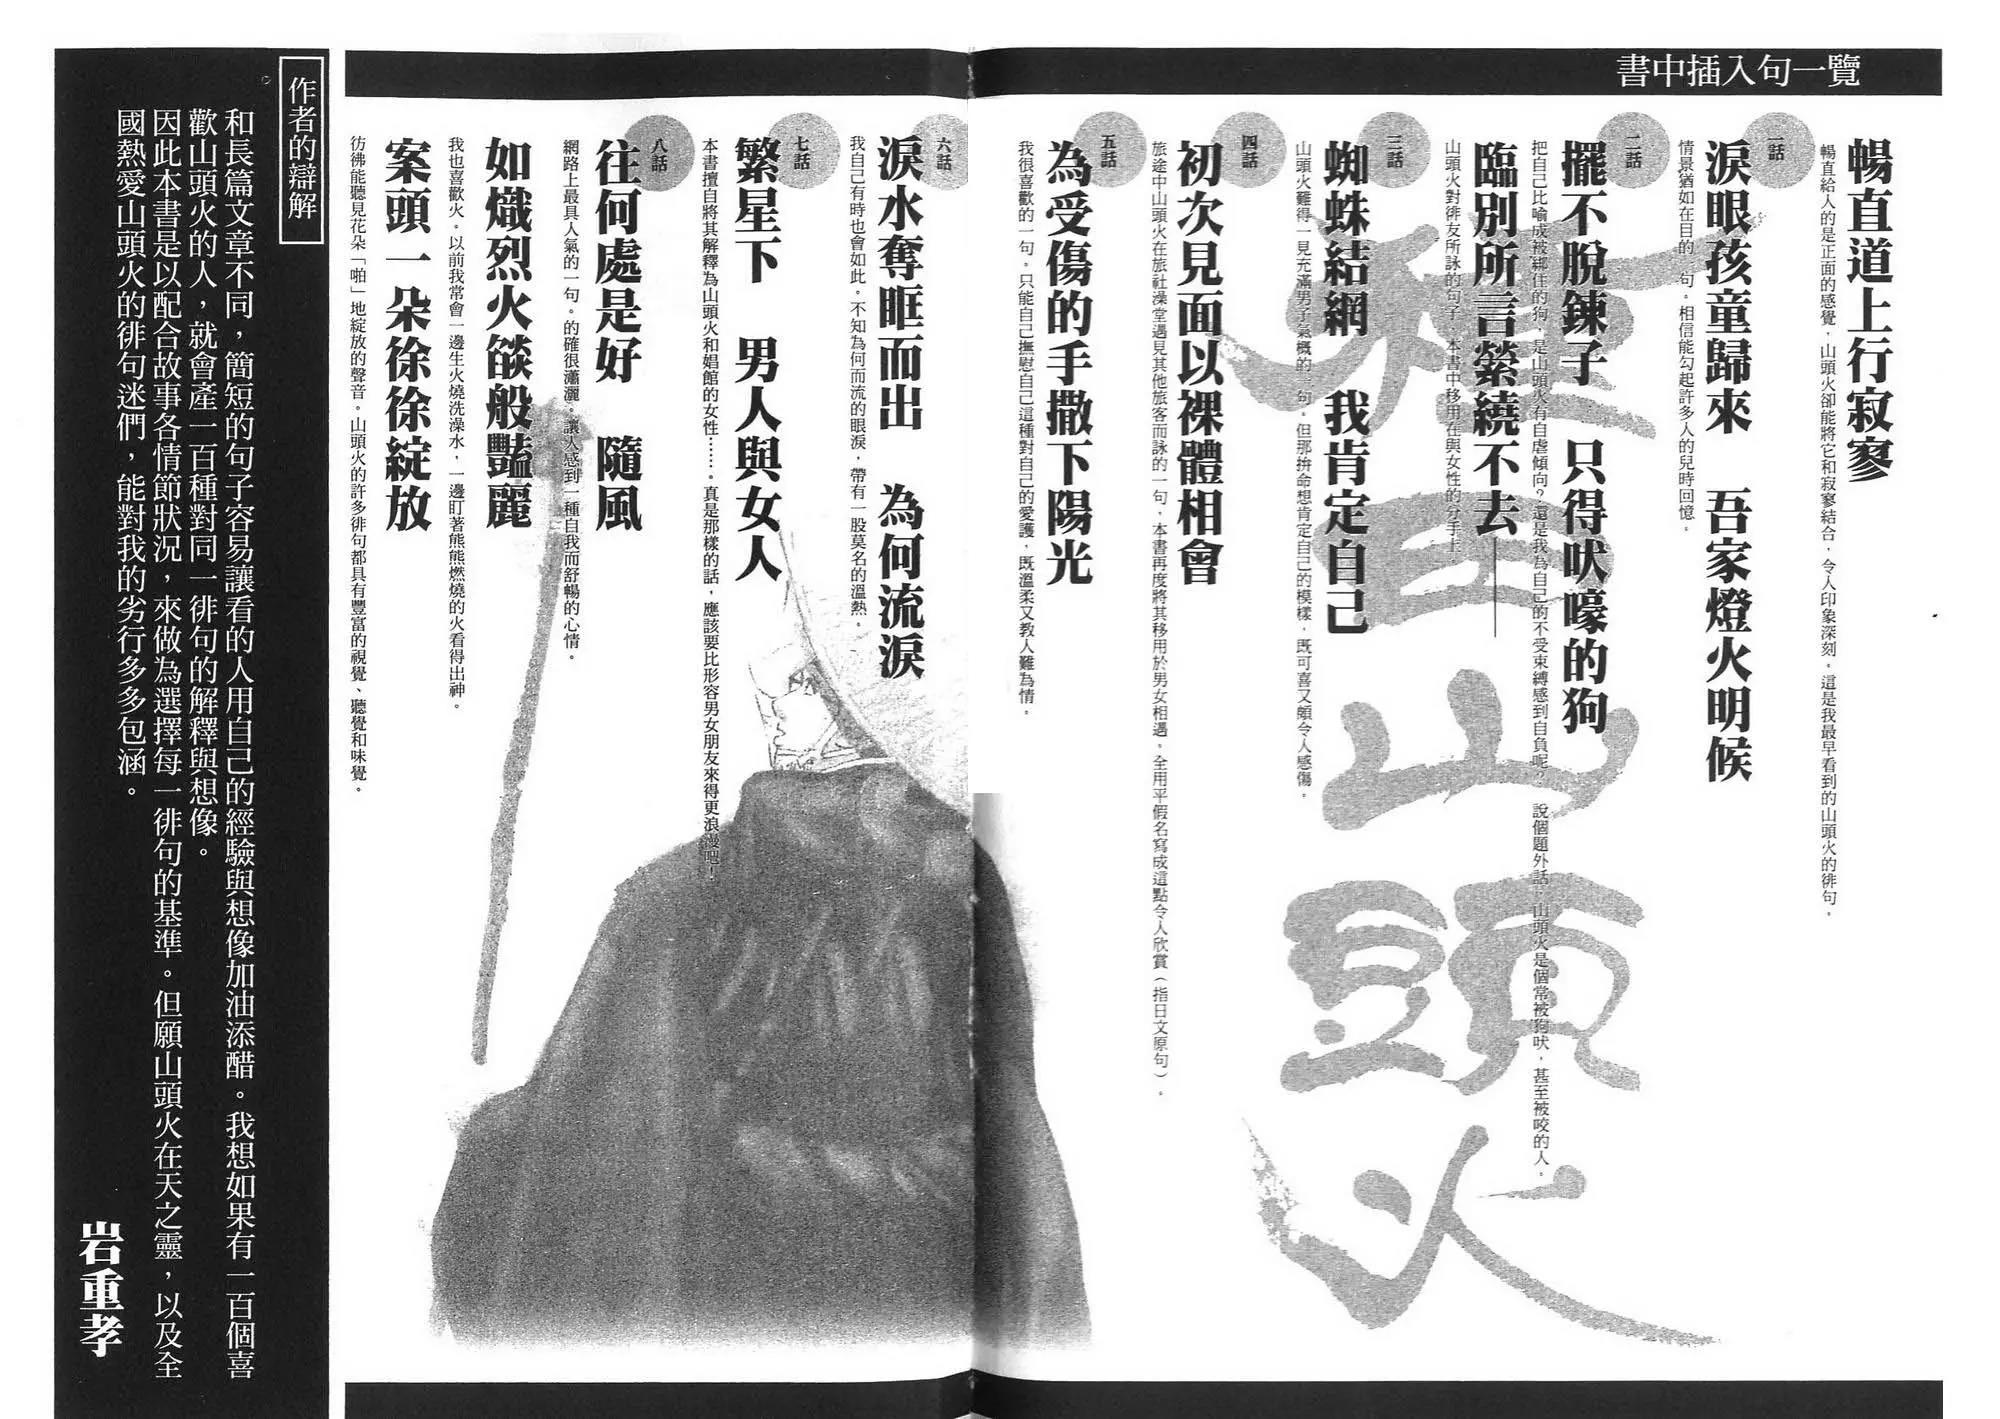 書中插入句一覽
暢直道上行寂寥
暢直給人的是正面的感覺，山頭火卻能將它和寂寥結合，令人印象深刻。這是我最早看到的山頭火的徘句。
一話
淚眼孩童歸來　吾家燈火明候
情景猶如在目的一句。相信能勾起許多人的兒時回憶。
二話
擺不脫鍊子　只得吠嚎的狗
把自己比喻成被綁住的狗，是山頭火有自虐傾向？還是我為自己的不受束縛感到自負呢？　說個題外話，山頭火是個常被狗吠，甚至被咬的人。
臨別所言縈繞不去——
山頭火對徘友所詠的句子，本書中移用在與女性的分手上。
三話
蜘蛛結網　我肯定自己
山頭火難得一見充滿男子氣概的一句。但那拚命想肯定自己的模樣，既可喜又頗令人感傷。
四話
初次見面以裸體相會
旅途中山頭火在旅社澡堂遇見其他旅客而詠的一句，本書再度將其移用於男女相遇。全用平假名寫成這點令人欣賞（指日文原句）。
五話
為受傷的手撒下陽光
我很喜歡的一句。只能自己撫慰自己這種對自己的愛護，既溫柔又教人難為情。
六話
淚水奪眶而出　為何流淚
我自己有時也會如此。不知為何而流的眼淚，帶有一股莫名的溫熱。
七話
繁星下　男人與女人
本書擅自將其解釋為山頭火和娼館的女性……。真是那樣的話，應該要比形容男女朋友來得更浪漫吧！
八話
往何處是好　隨風
網路上最具人氣的一句。的確很瀟灑。讓人感到一種自我而舒暢的心情。
如熾烈火燄般豔麗
我也喜歡火。以前我常會一邊生火燒洗澡水，一邊盯著熊熊燃燒的火看得出神。
案頭一朵徐徐綻放
彷彿能聽見花朵「啪」地綻放的聲音。山頭火的許多徘句都具有豐富的視覺、聽覺和味覺。
種田山頭火
作者的辯解
和長篇文章不同，簡短的句子容易讓看的人用自己的經驗與想像加油添醋。我想如果有一百個喜
歡山頭火的人，就會產一百種對同一徘句的解釋與想像。
因此本書是以配合故事各情節狀況，來做為選擇每一徘句的基準。但願山頭火在天之靈，以及全
國熱愛山頭火的徘句迷們，能對我的劣行多多包涵。
岩重孝